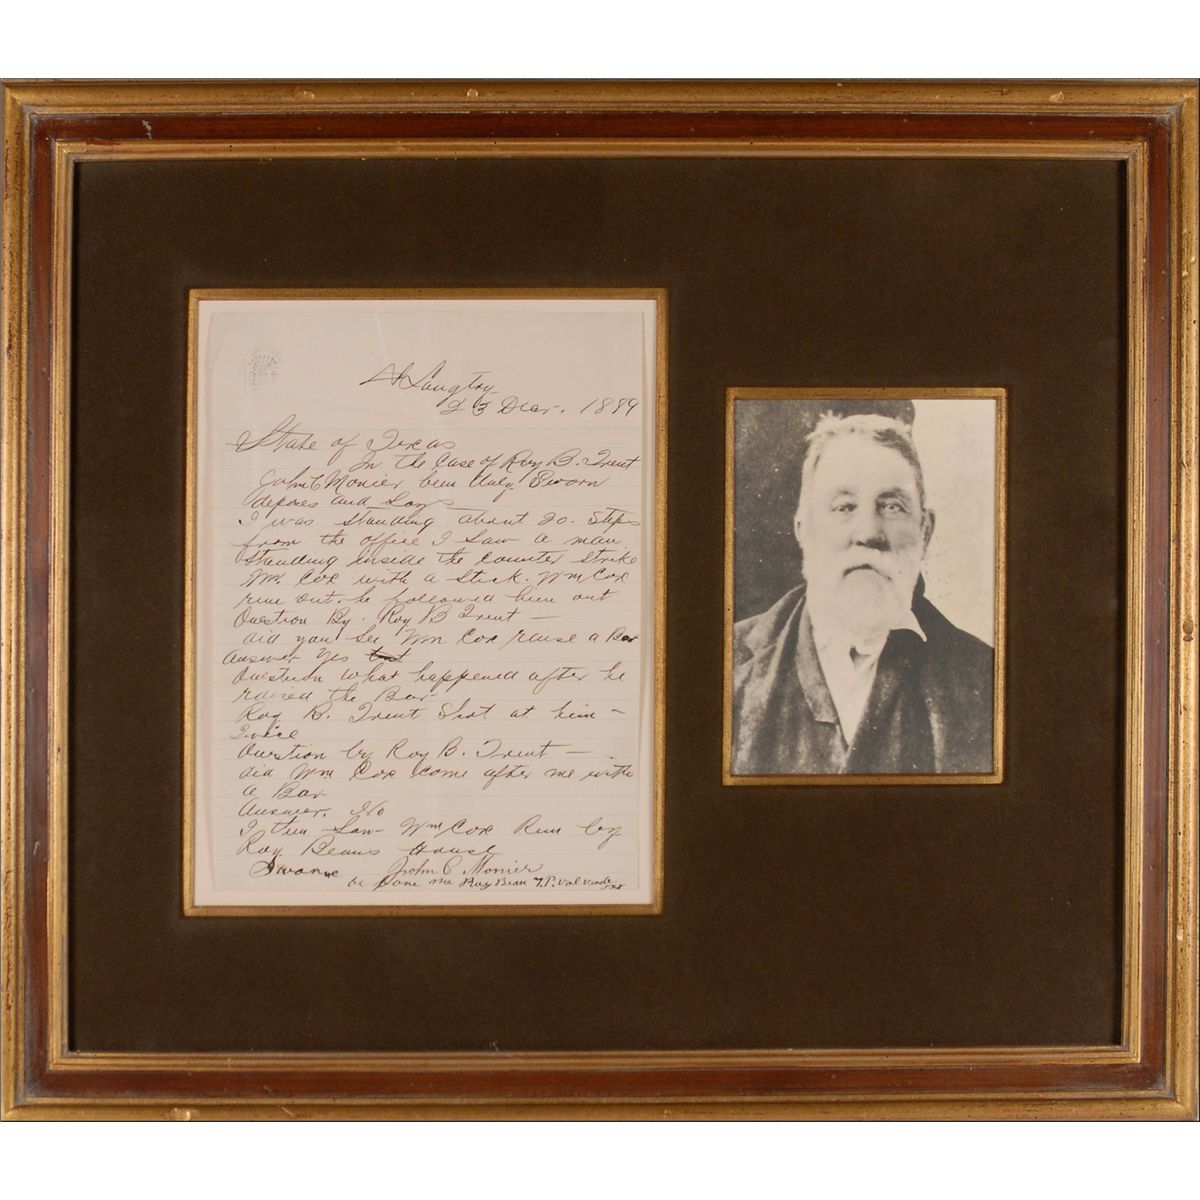 Langtry
23 Decr. 1899
State of Texas
In the Case of Roy B. Trent
John C Monier been duly Sworn
deposes and Says
I was standing about 20. Steps
from the office I Saw a man
Standing inside the counter strike
Wm. Cox with a stick. Wm Cox
run out. he followed him out
Question By. Roy B Trent —
did you See Wm. Cox raise a Bar
Answer Yes
Question what happened after he
raised the Bar
Roy B. Trent Shot at him —
Twice
Question by Roy B. Trent —
did Wm Cox come after me with
a Bar
Answer. No
I then Saw Wm Cox Run by
Roy Beans House
John C Monier
be fore me Roy Bean J.P. Val Verde